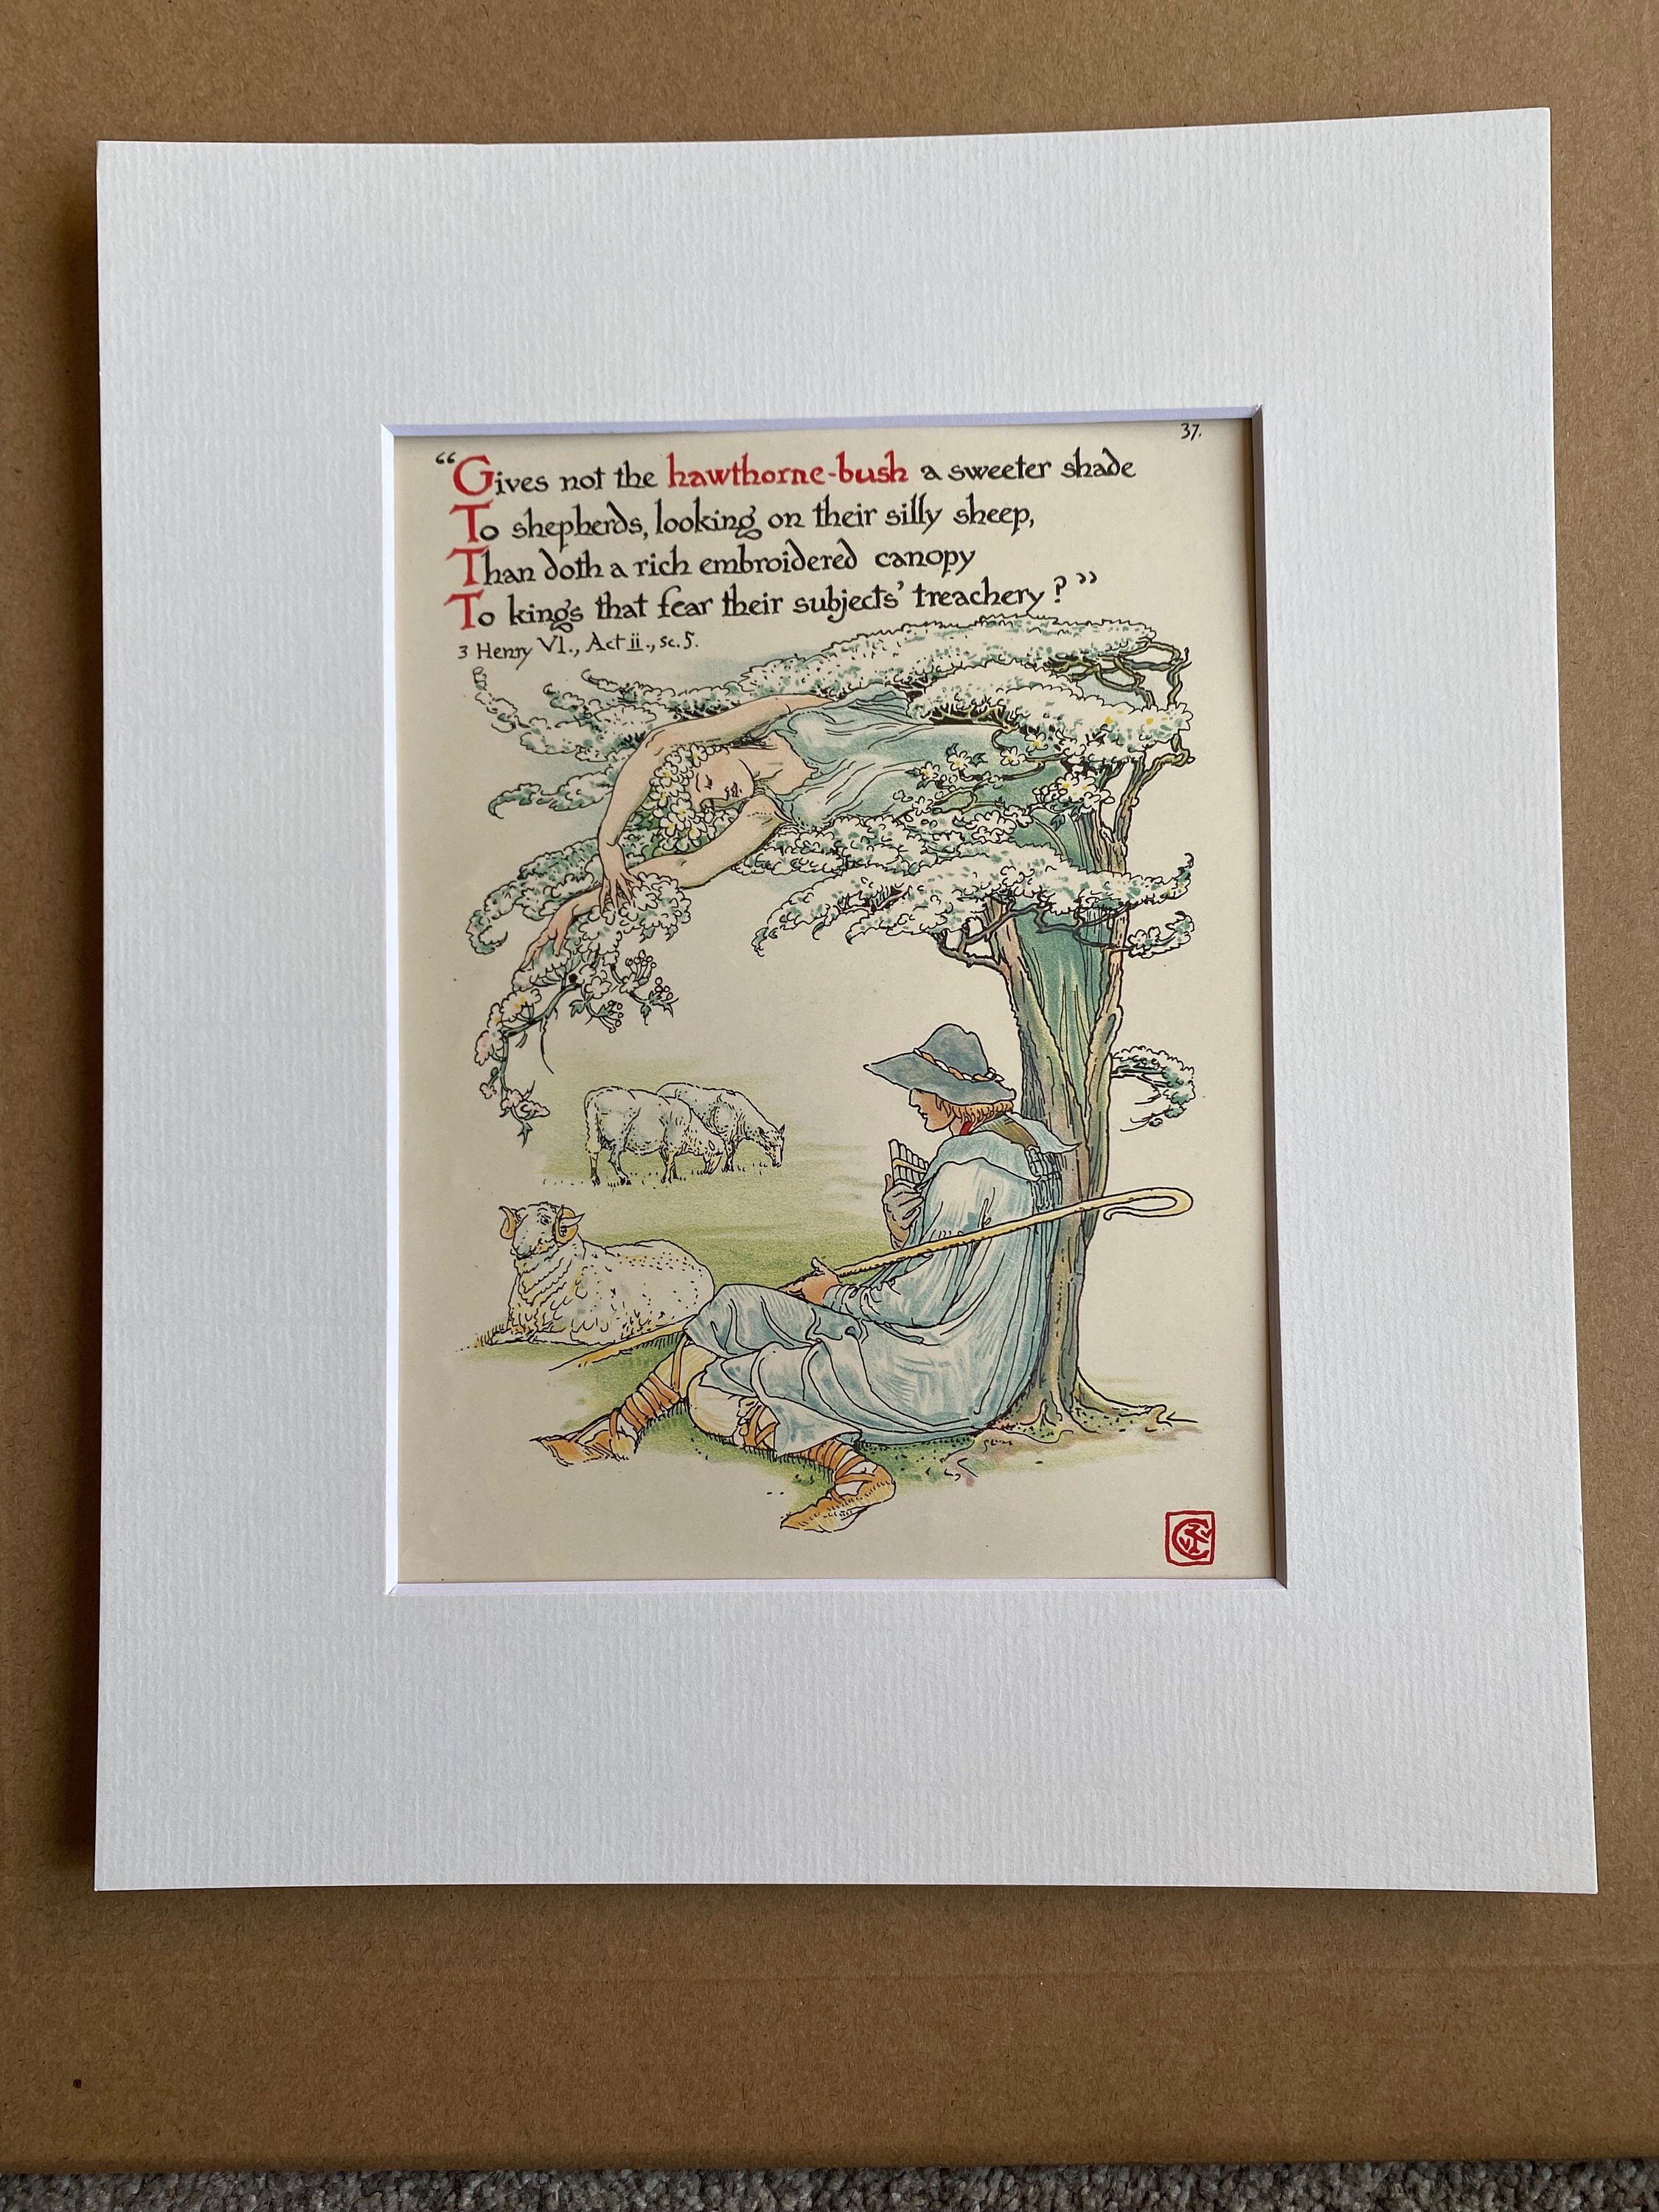 37.
“Gives not the hawthorne-bush a sweeter shade
To shepherds, looking on their silly sheep,
Than doth a rich embroidered canopy
To kings that fear their subjects’ treachery?”
3 Henry VI., Act ii., sc. 5.